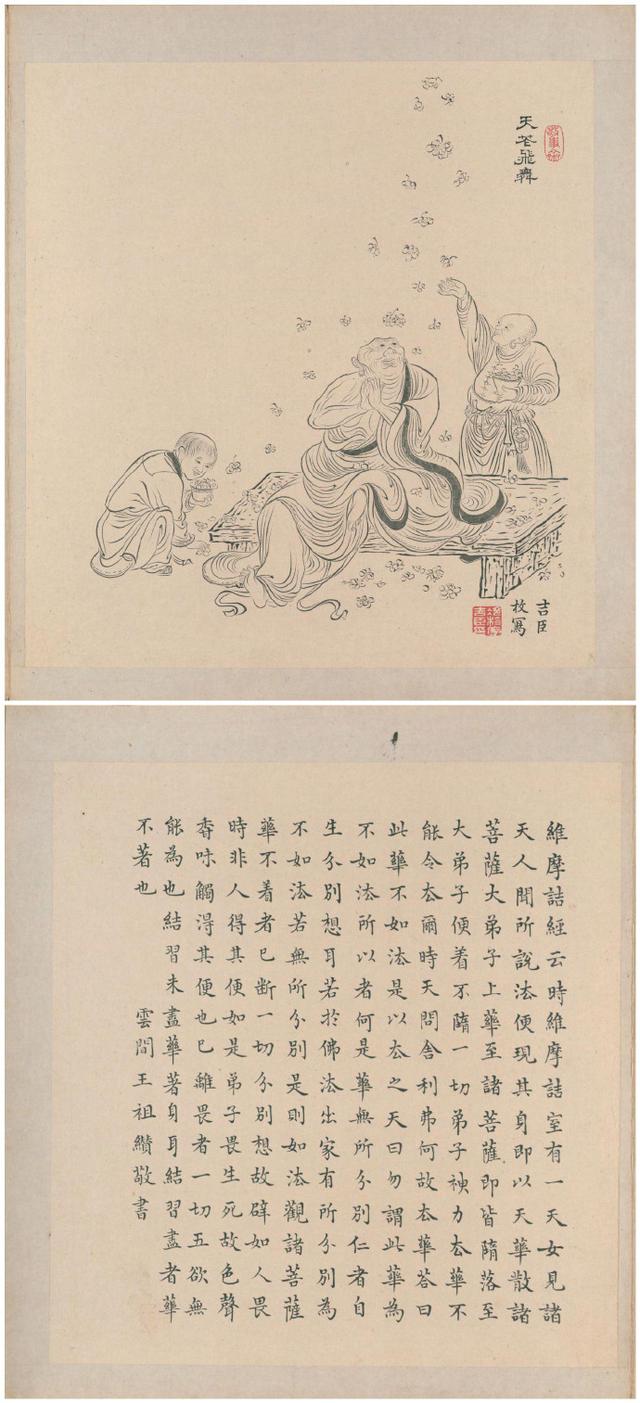 天花飛舞
吉臣
枚寫
維摩詰經云時維摩詰室有一天女見諸
天人聞所說法便現其身即以天華散諸
菩薩大弟子上華至諸菩薩即皆隋落至
大弟子便着不隋一切弟子神力去華不
能令去爾時天問舍利弗何故去華答曰
此華不如法是以去之天曰勿謂此華為
不如法所以者何是華無所分別仁者自
生分別想耳若於佛法出家有所分別為
不如法若無所分別是則如法觀諸菩薩
華不着者已断一切分別想故辟如人畏
時非人得其便如是弟子畏生死故色聲
香味觸得其便也已離畏者一切五欲無
能為也結習未盡華著身耳結習盡者華
不著也　雲間王祖纘敬書